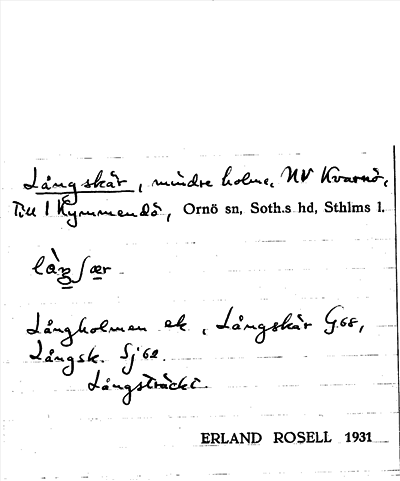 Långskär, mindre holme, NV Kvarnö,
Till 1 Kymmendö, Ornö sn, Soth.s hd, Sthlms l.
lòŋʃær
Långholmen ek, Långskär G68,
Långsk. Sj62.
Långsträckt
ERLAND ROSELL 1931